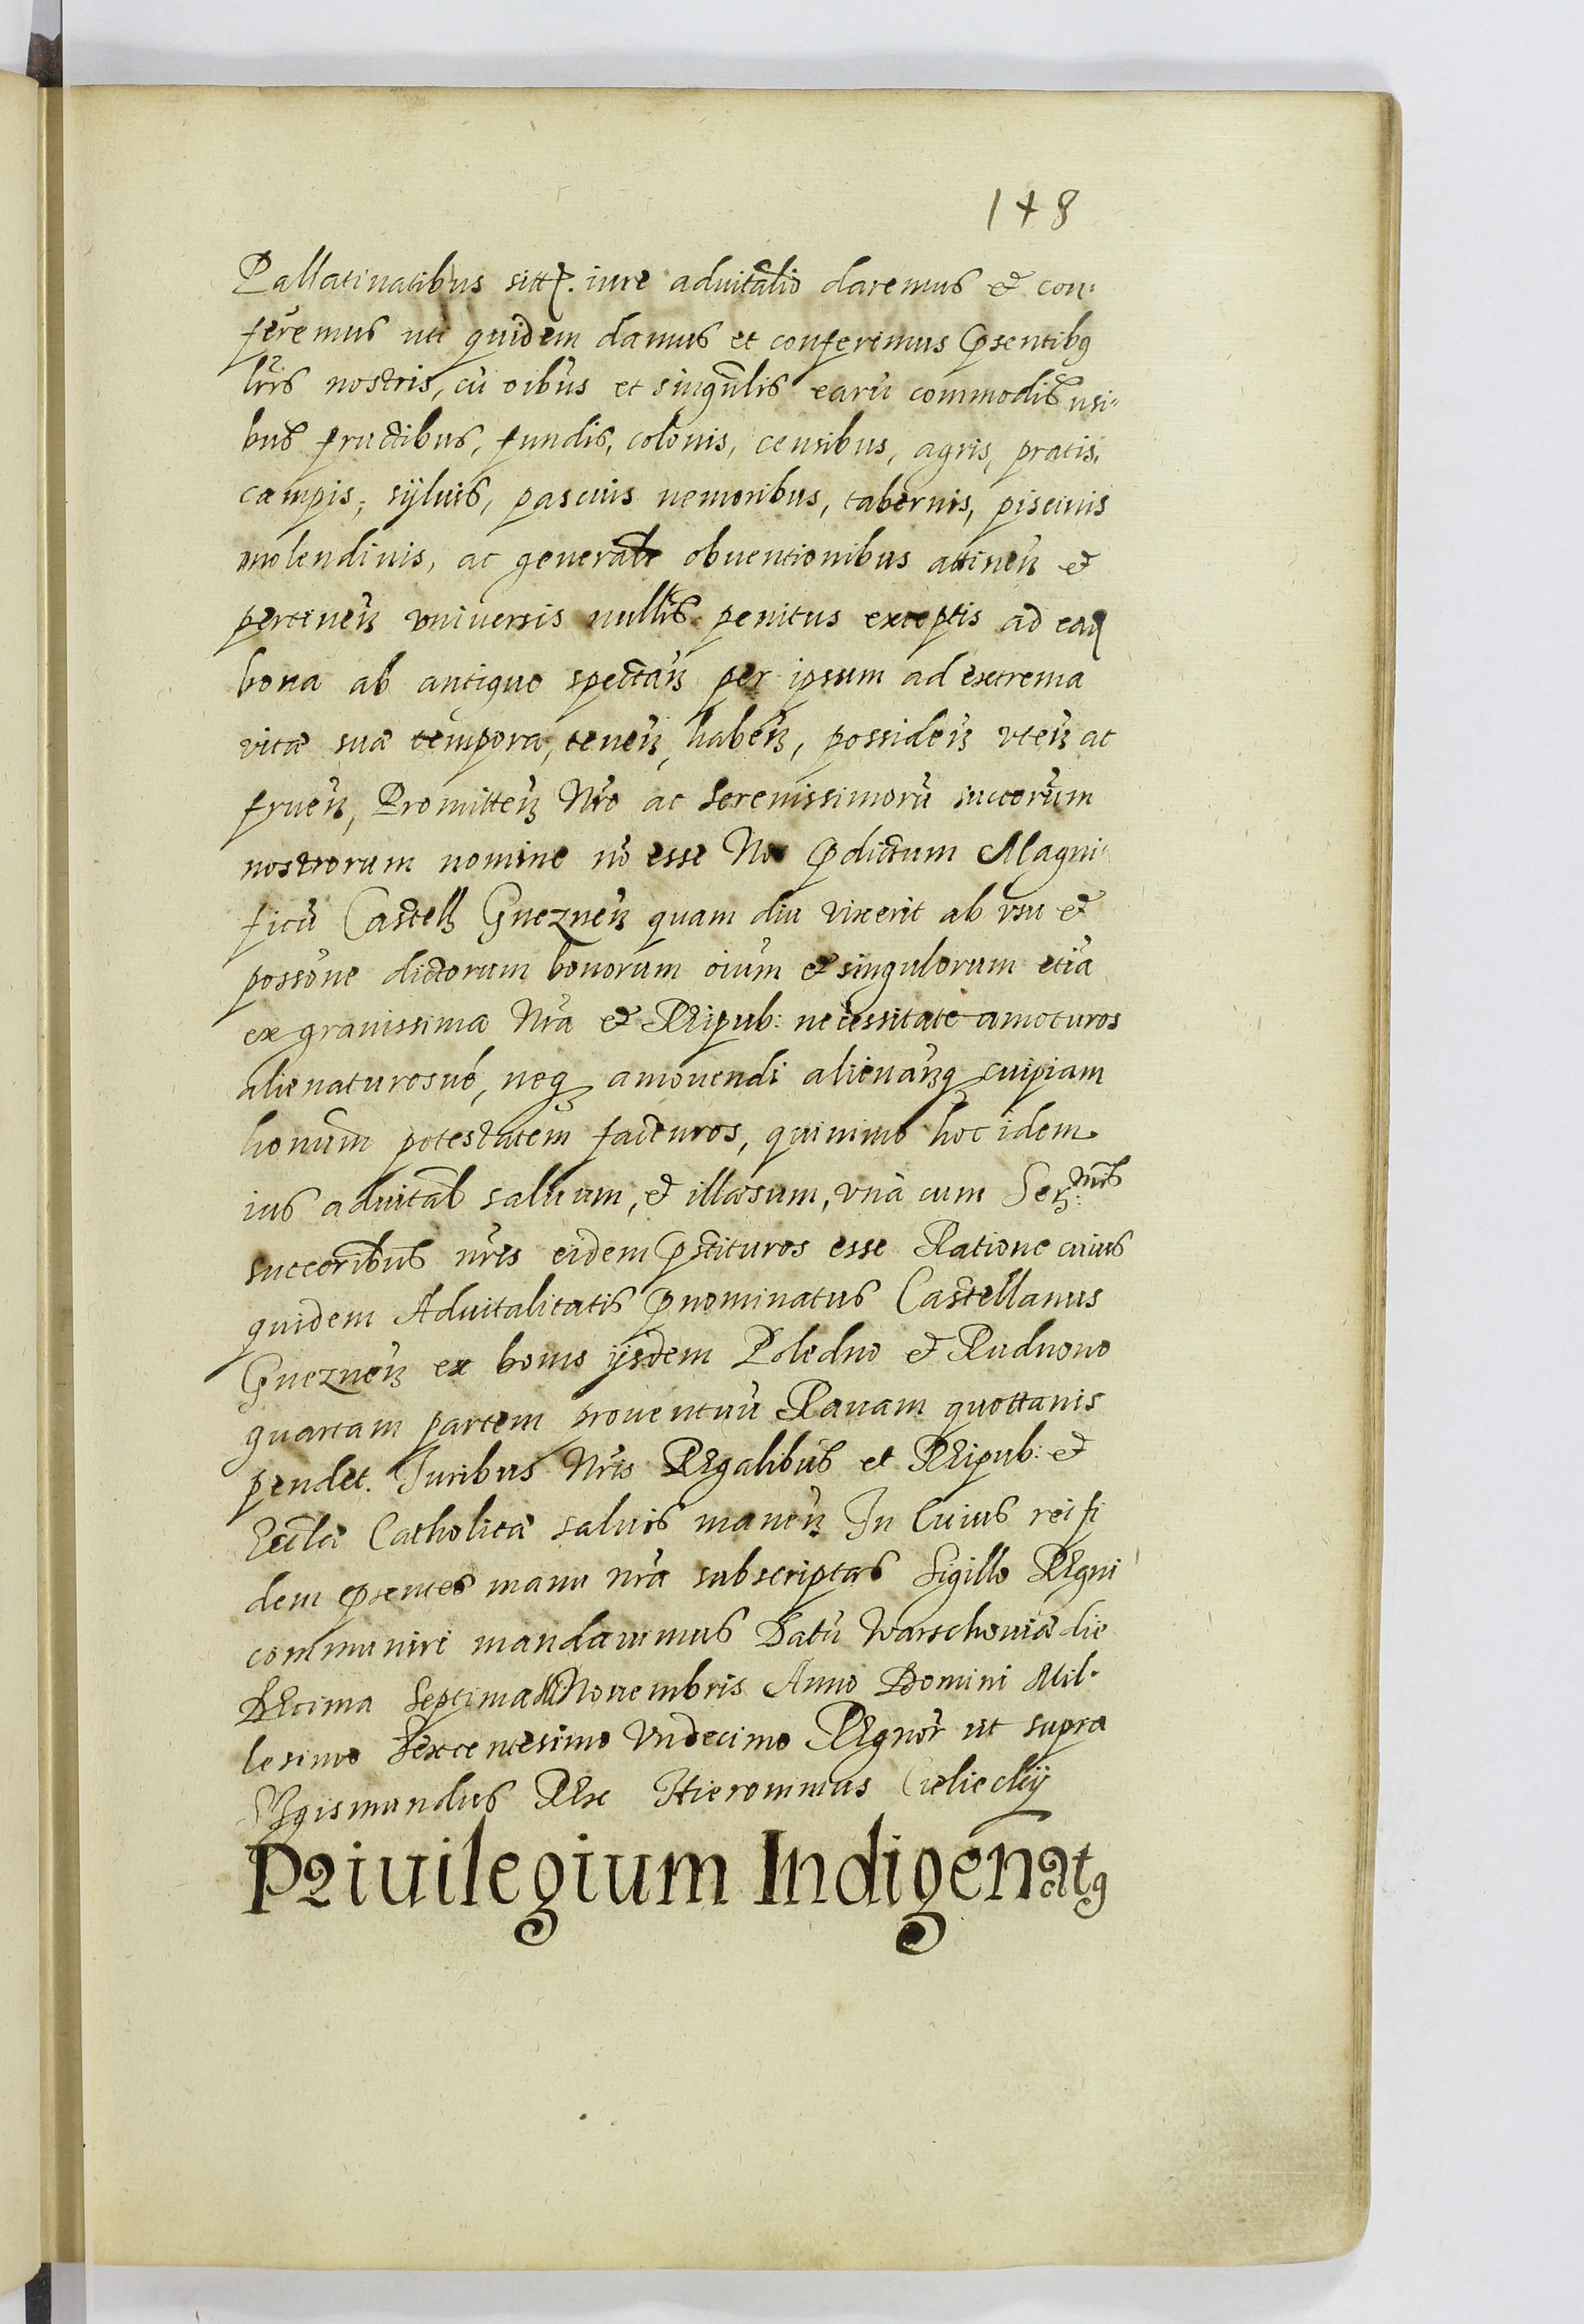 148
Pallatinatibus sitt. iure aduitalio daremus et con:
feremus uti quidem damus et conferimus psentibq
lris nostris, cũ oibus et singulis earũ commodis usi-
bus fructibus, fundis, colonis, censibus, agris, pratis,
campis, sÿluis, pascuis nemoribus, tabernis, piscinis
molendinis, ac generalr obuentionibus attineñ et
pertineñ vniuersis nullis penitus exceptis ad eaq
bona ab antiquo spectañ per ipsum ad extrema
vitæ suæ tempora, teneñ, habeñ, possideñ vteñ ac
frueñ, Promitteñ Nr̃o ac Serenissimorũ succorum
nostrorum nomine nõ esse Nos pdictum Magni-
ficũ Castell Gnezneñ quam diu vixerit ab vsu et
possõne dictorum bonorum oium et singulorum etiã
ex grauissima Nrã et Reipub: necessitate amoturos
alienaturosué, neq amouendi alienañq cuipiam
honum potestatem facturos, quinimo hoc idem
ius aduital saluum, et illæsum, vnà cum Ser: mis
succoribus nris eidem pstituros esse Ratione cuius
quidem Aduitalitatis pnominatus Castellanus
Gnezneñ ex bonis ÿsdem Poledno et Rudnono
quartam partem prouentuũ Rauam quottanis
pendet. Juribus Nris Regalibus et Reipub: et
Eccla Catholicæ saluis maneñ In Cuius rei fi
dem psentes manu nrã subscriptas Sigillo Regni
communiri mandauimus Datũ Warschouiæ die
Decima Septima Nouembris Anno Domini Mil-
lesimo Sexcentesimo Vndecimo Regnor̃ ut supra
Sigismundus Rex Hieronimus Cieliecky
Priuilegium Indigenatq